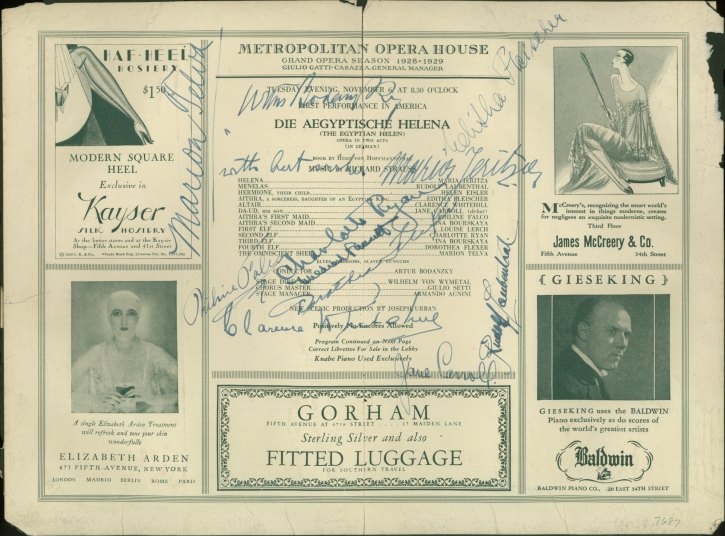 HAF-HEEL
HOSIERY
$1.50
MODERN SQUARE
HEEL
Exclusive in
Kayser
SILK HOSIERY
At the better stores and at the Kayser
Shop—Fifth Avenue and 41st Street
METROPOLITAN OPERA HOUSE
GRAND OPERA SEASON 1928-1929
GIULIO GATTI-CASAZZA, GENERAL MANAGER
TUESDAY EVENING, NOVEMBER 6, AT 8.30 O'CLOCK
FIRST PERFORMANCE IN AMERICA
DIE AEGYPTISCHE HELENA
(THE EGYPTIAN HELEN)
OPERA IN TWO ACTS
(IN GERMAN)
BOOK BY HUGO VON HOFFMANNSTHAL
MUSIC BY RICHARD STRAUSS
HELENA MARIA JERITZA
MENELAS RUDOLF LAUBENTHAL
HERMIONE, THEIR CHILD HELEN EISLER
AITHRA, A SORCERESS, DAUGHTER OF AN EGYPTIAN KING EDITHA FLEISCHER
ALTAIR CLARENCE WHITEHILL
DA-UD, HIS SON JANE CARROLL (debut)
AITHRA'S FIRST MAID PHILINE FALCO
AITHRA'S SECOND MAID INA BOURSKAYA
FIRST ELF LOUISE LERCH
SECOND ELF CHARLOTTE RYAN
THIRD ELF INA BOURSKAYA
FOURTH ELF DOROTHEA FLEXER
THE OMNISCIENT SHELL MARION TELVA
ELVES, WARRIORS, SLAVES, EUNUCHS
CONDUCTOR ARTUR BODANZKY
STAGE DIRECTOR WILHELM VON WYMETAL
CHORUS MASTER GIULIO SETTI
STAGE MANAGER ARMANDO AGNINI
NEW SCENIC PRODUCTION BY JOSEPH URBAN
Positively No Encores Allowed
Program Continued on Next Page
Correct Librettos For Sale in the Lobby
Knabe Piano Used Exclusively
Marion Telva
Editha Fleischer
with best
Maria Jeritza
Charlotte Ryan
Philine Falco
Clarence Whitehill
Jane Carroll
Rudolf Laubenthal
McCreery's, recognizing the smart world's
interest in things moderne, creates
for negligees an exquisite modernistic setting.
Third Floor
James McCreery & Co.
Fifth Avenue 34th Street
A single Elizabeth Arden Treatment
will refresh and tone your skin
wonderfully
ELIZABETH ARDEN
673 FIFTH AVENUE, NEW YORK
LONDON MADRID BERLIN ROME PARIS
GORHAM
FIFTH AVENUE AT 47TH STREET . . . . 17 MAIDEN LANE
Sterling Silver and also
FITTED LUGGAGE
FOR SOUTHERN TRAVEL
{ GIESEKING }
GIESEKING uses the BALDWIN
Piano exclusively as do scores of
the world's greatest artists
Baldwin
BALDWIN PIANO CO., 20 EAST 54TH STREET
7687